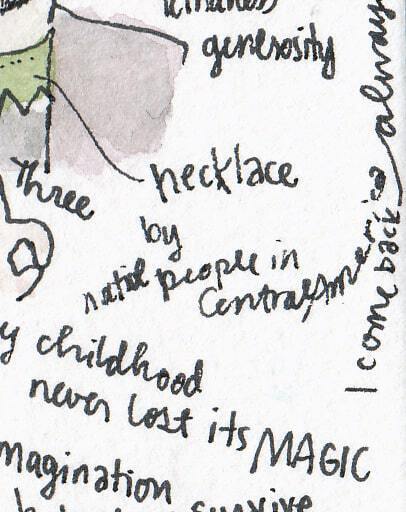 kindness
generosity
Three
necklace
by
native people in
Central America
I come back always
y childhood
never lost its MAGIC
magination
survive